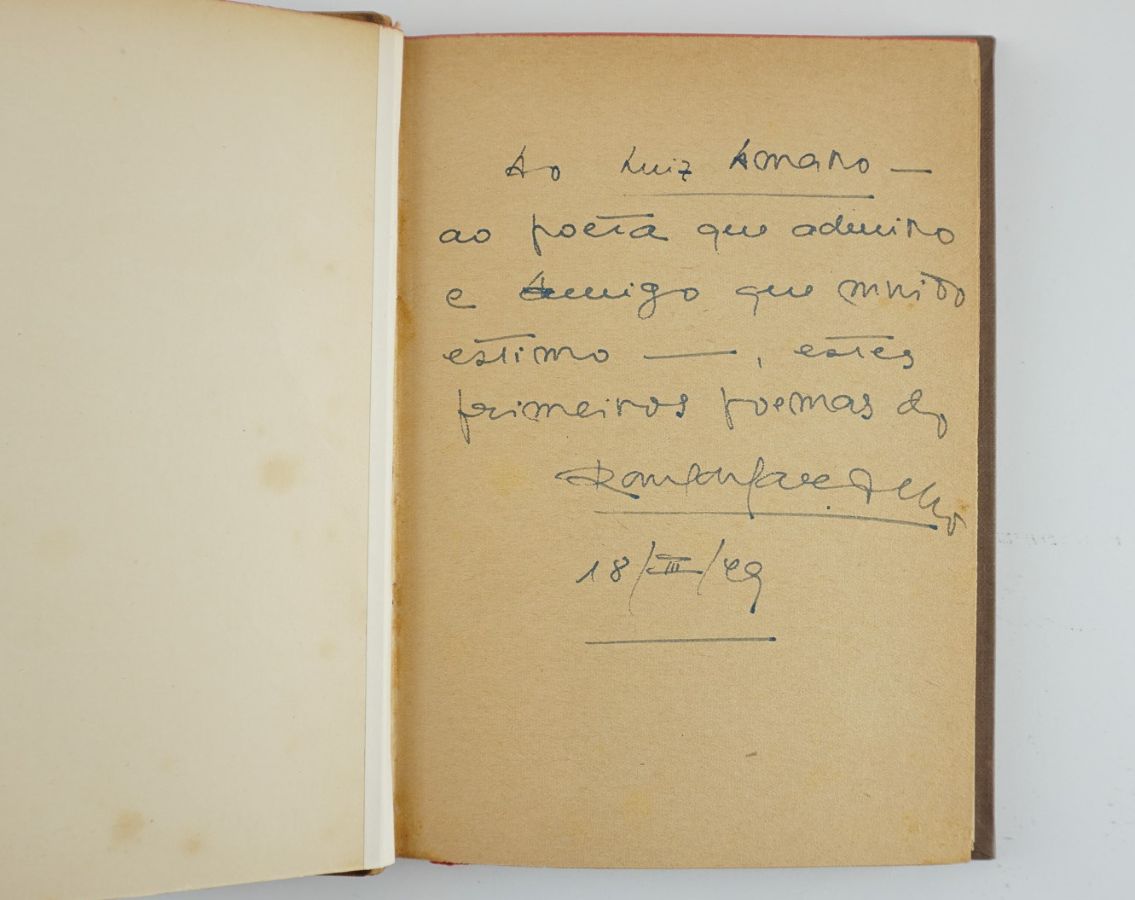 Ao Luiz Amaro —
ao poeta que admiro
e Amigo que muito
estimo — , estes
primeiros poemas do
18/III/49